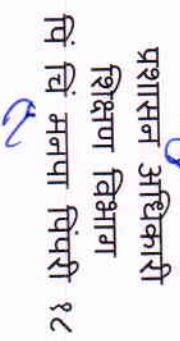 प्रशासन अधिकारी
शिक्षण विभाग
पिं चिं मनपा पिंपरी १८